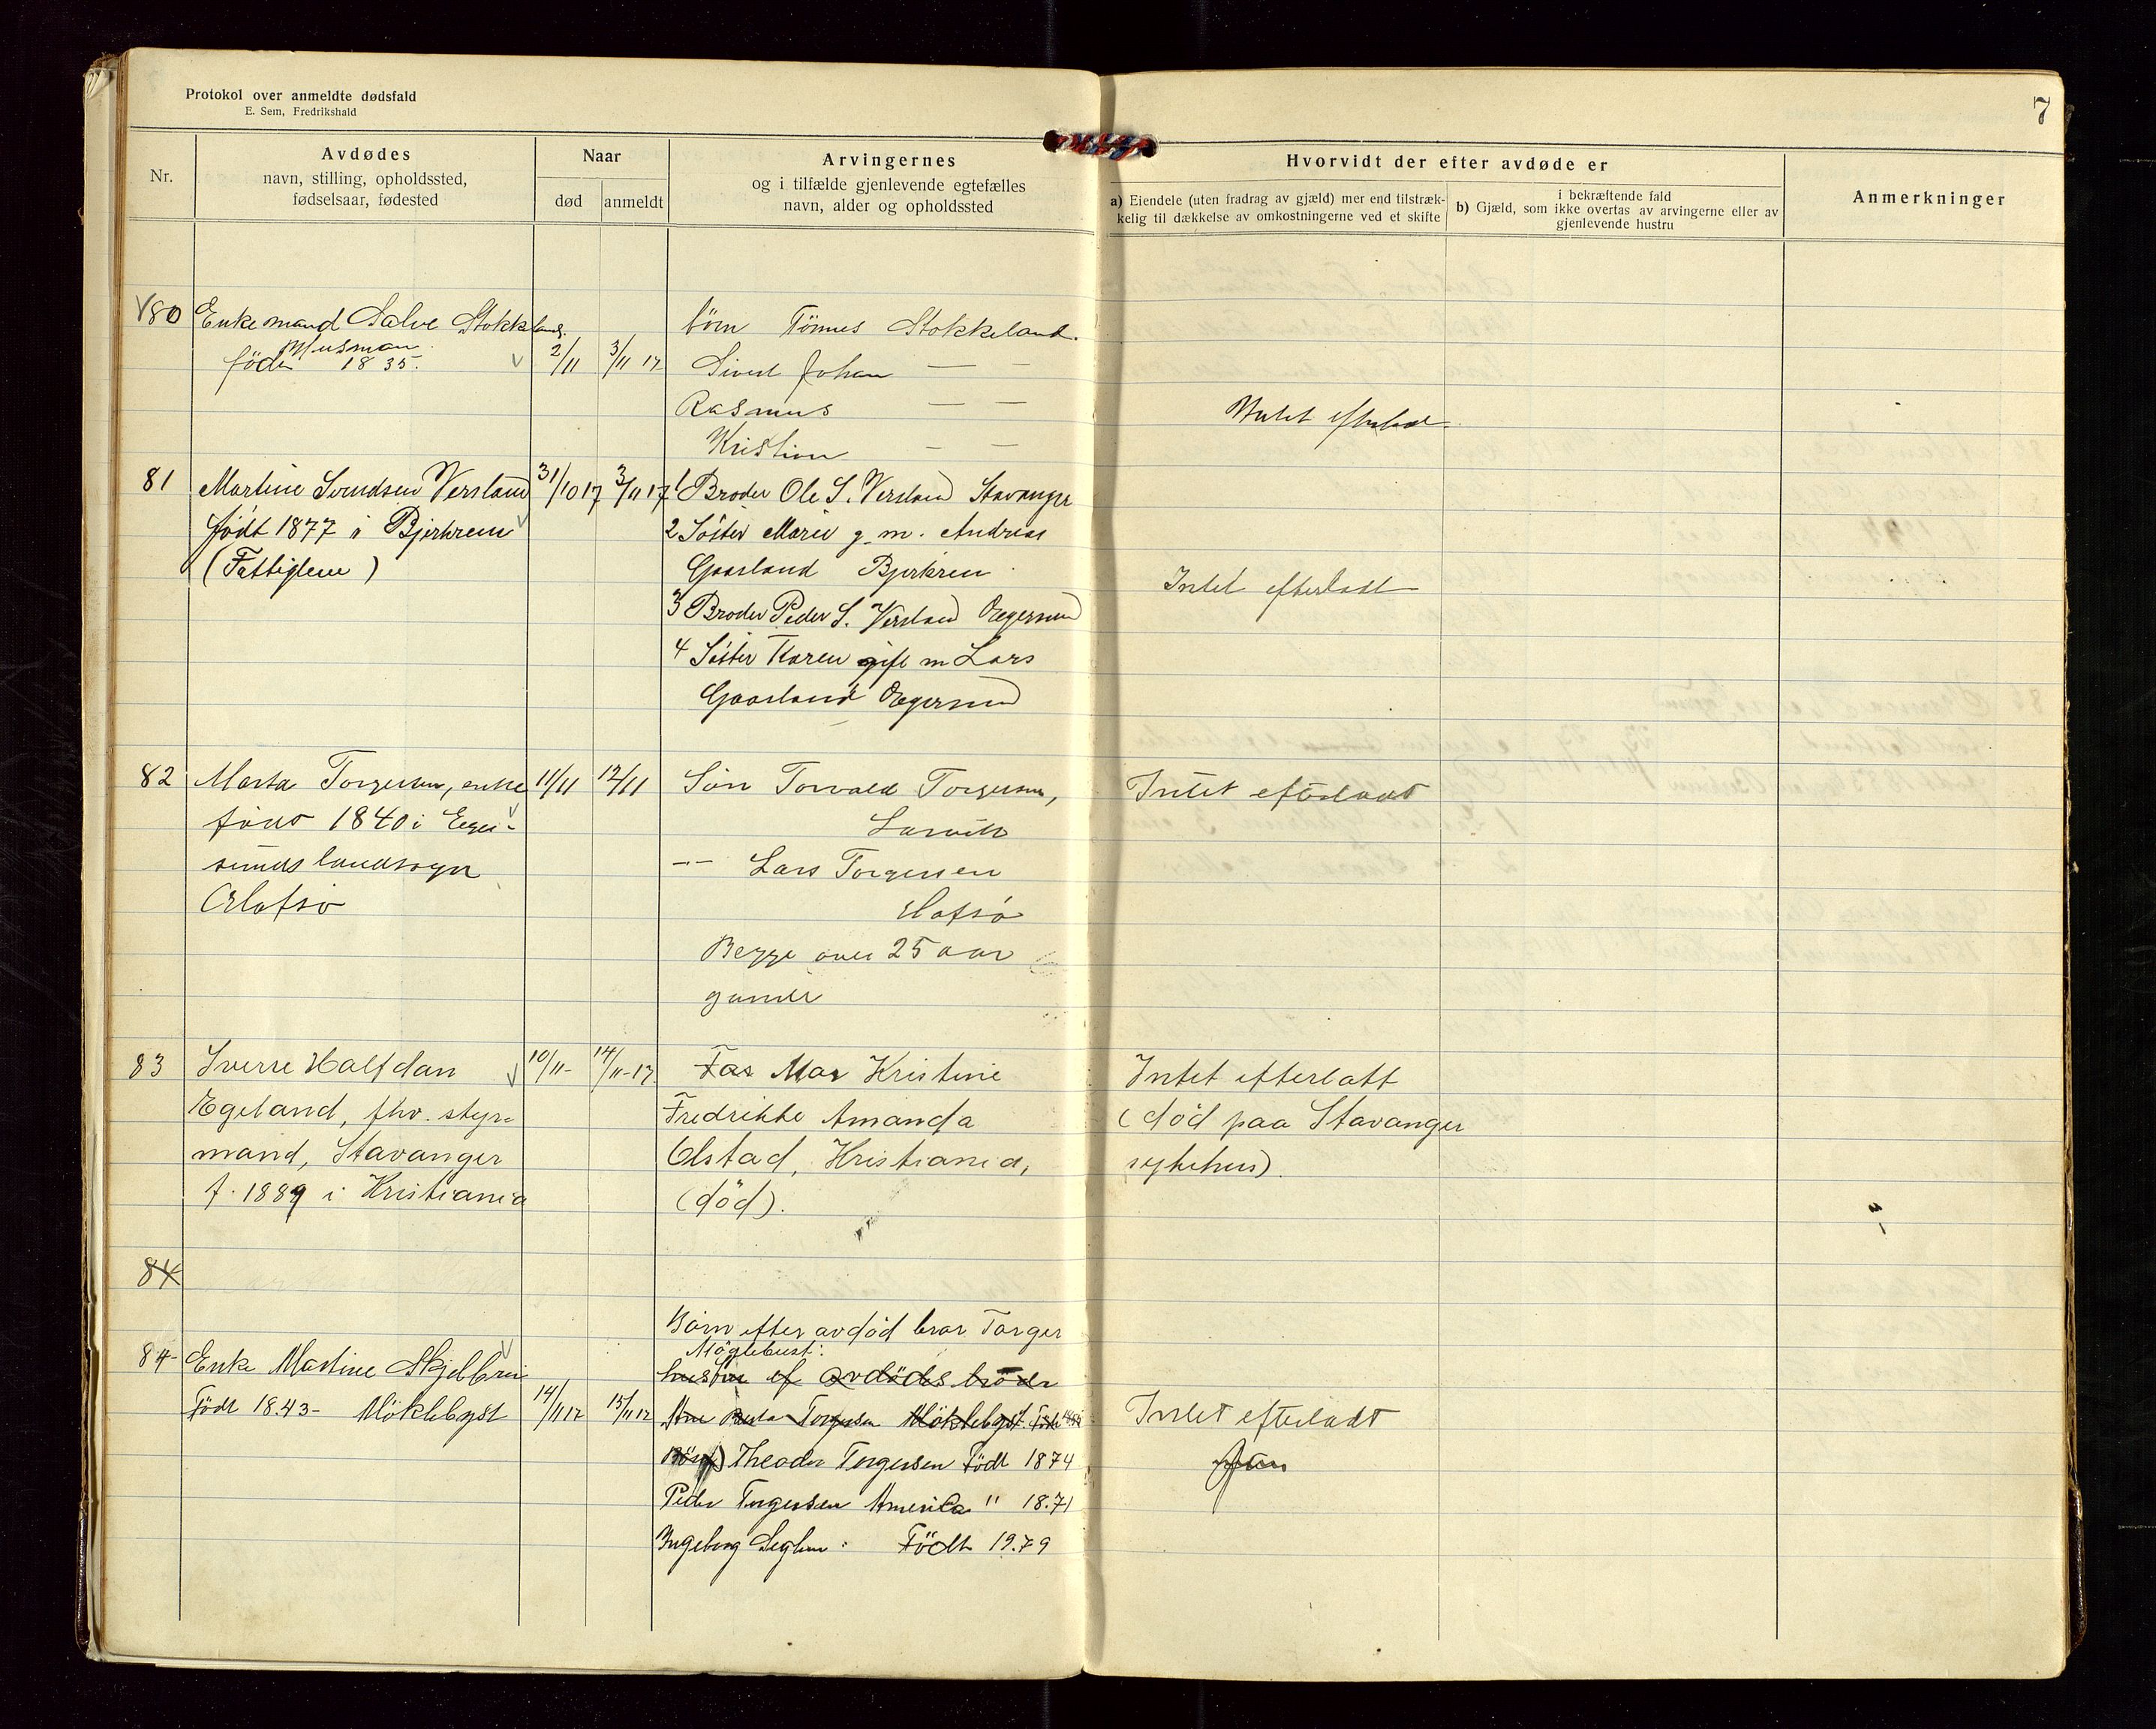 Protokol over anmeldte dødsfald
E. Sem, Fredrikshald
7
Nr.
Avdødes
navn, stilling, opholdssted,
fødselsaar, fødested
Naar
død
anmeldt
Arvingernes
og i tilfælde gjenlevende egtefælles
navn, alder og opholdssted
Hvorvidt der efter avdøde er
a) Eiendele (uten fradrag av gjæld) mer end tilstræk-
kelig til dækkelse av omkostningerne ved et skifte
i bekræftende fald
b) Gjæld, som ikke overtas av arvingerne eller av
gjenlevende hustru
Anmerkninger
80 Enkemand Salve Stokkland
Husman
föde 1835.
2/11 3/11 17
Tönnes Stokkeland.
Sivert Johan — —
Rasmus — —
Kristian — —
Intet efterladt
81 Martine Svendsen Versland
født 1877 i Bjerkrem
(Fattiglem)
31/10 17 3/11 17
1 Broder Ole S. Versland Stavanger
2 Søster Marie g. m. Andreas
Gaasland Bjerkrem
3 Broder Peder S. Versland Egersund
4 Søster Karen gift m Lars
Gaasland Egersund
Intet efterladt
82 Marta Torgersen, enke
født 1840 i Eger-
sunds landsogn
11/11 12/11
Søn Torvald Torgersen,
Larvik
-- Lars Torgersen
Begge over 25 aar
gamle
Intet efterladt
83 Sverre Halfdan
Egeland, fhv. styr-
mand, Stavanger
f. 1889 i Kristiania
10/11- 14/11-17
Far Mor Kristine
Fredrikke Amanda
Olstad, Kristiania,
(död).
Intet efterlatt
(död paa Stavanger
sykehus).
84
84- Enke Martine Skjelbrei
Född 1843- Möklebyst
14/11 17 15/11 17
Børn efter avdöd bror Torger
Möglebust:
hustru ef avdödes broder
Torgersen Möklebyst
Børn) Theodor Torgersen Född 1874
Peder Torgersen Amerika " 18.71
Ingeborg Födt 19.79
Intet efterladt